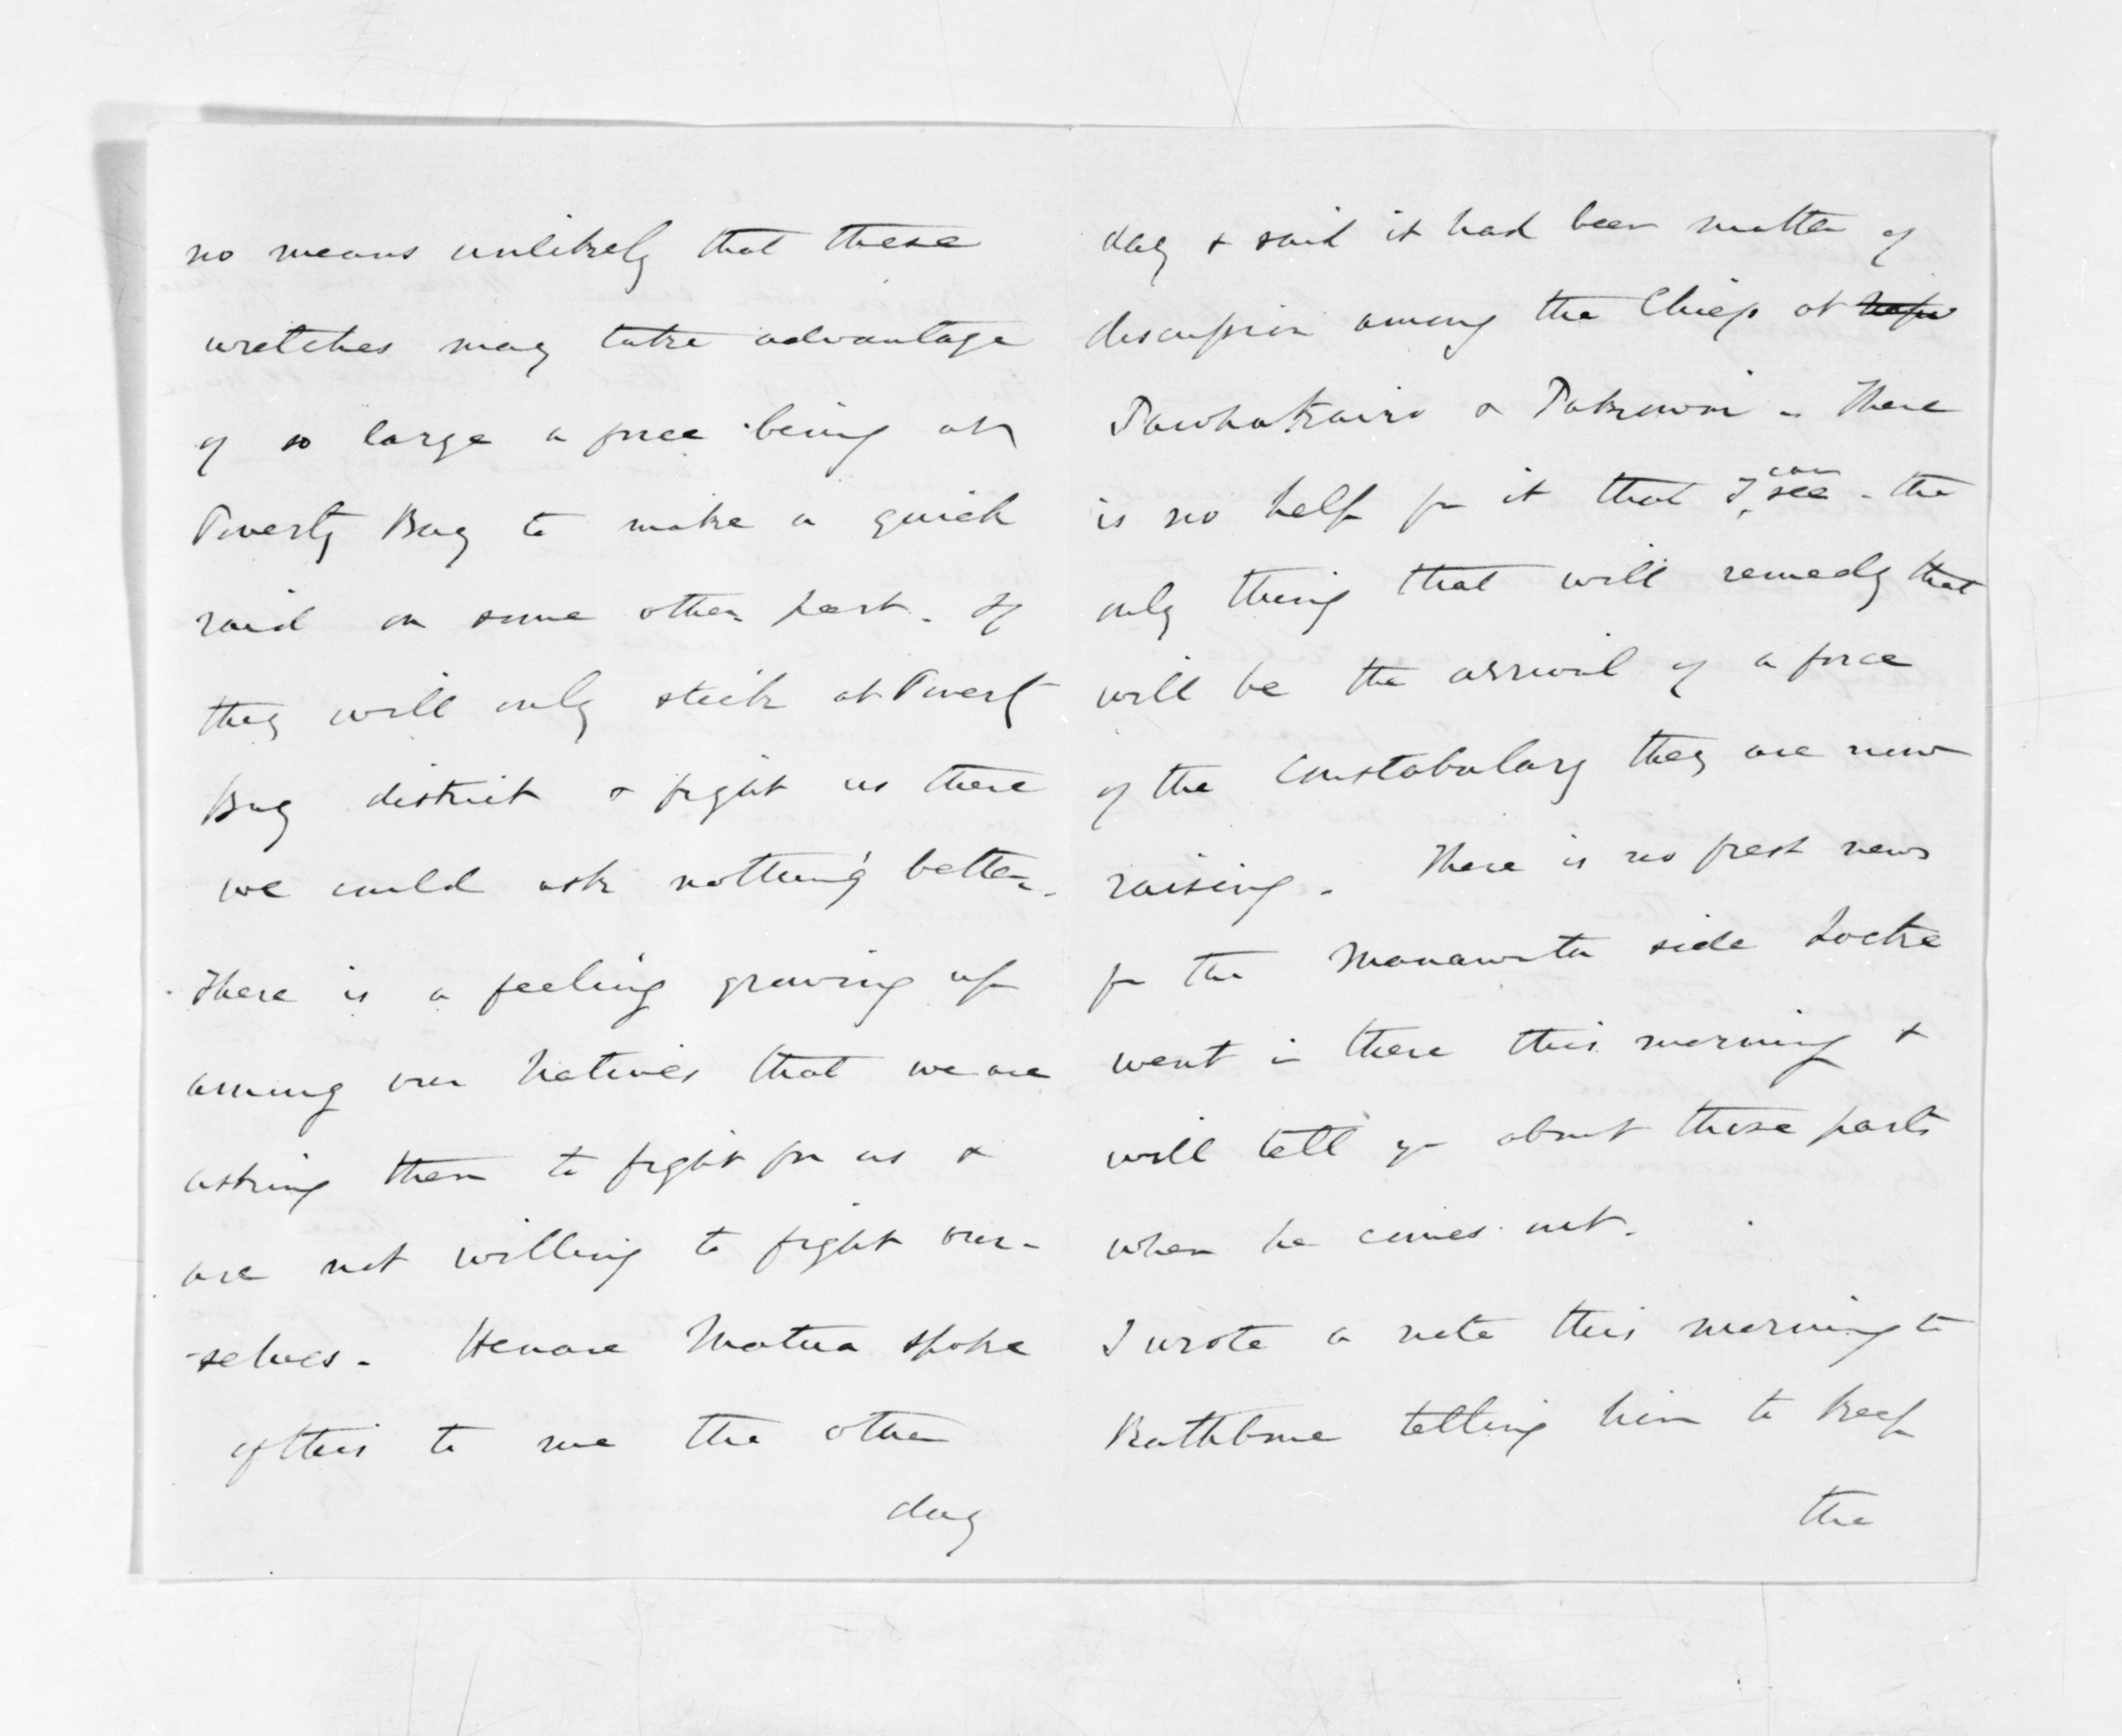 no means unlikely that these
wretches may take advantage
of so large a force being at
Poverty Bay to make a quick
raid on some other part. If
they will only stick at Poverty
Bay district & fight us there
we could ask nothing better.
There is a feeling growing up
among our Natives that we are
asking them to fight for us &
are not willing to fight our-
-selves. Henare Matua spoke
of this to me the other
day
day & said it had been matter of
discussion among the Chiefs at
Pawhakairo & Pakowai. There
is no help for it that I can see. the
only thing that will remedy that
will be the arrival of a force
of the Constabulary they are now
raising. There is no fresh news
fr the Manawatu side Locke
went in there this morning &
will tell you about those parts
when he comes out.
I wrote a note this morning to
Rathbone telling him to keep
the